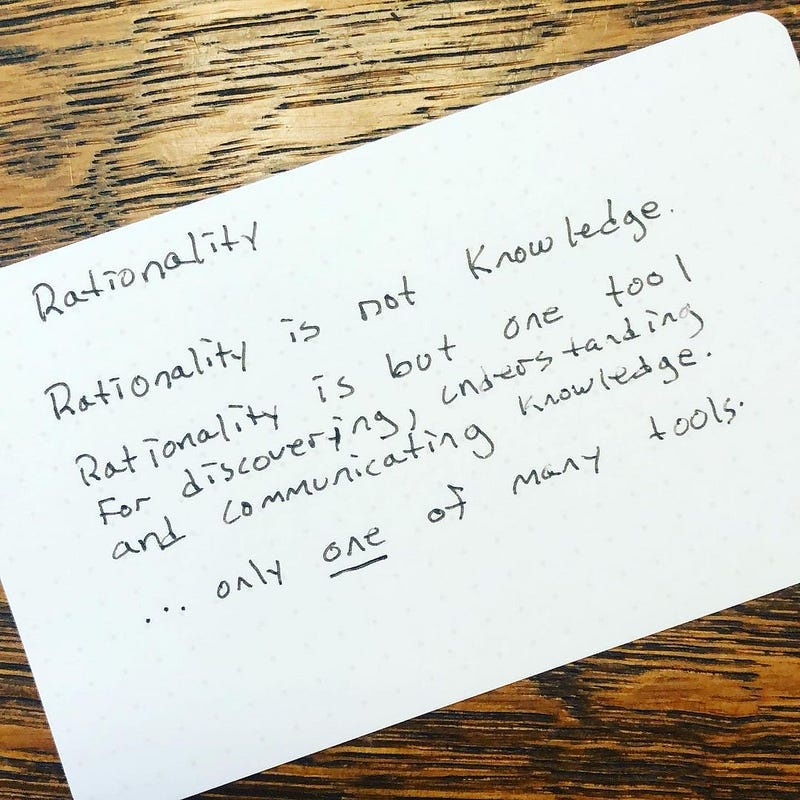 Rationality
Rationality is not Knowledge.
Rationality is but one tool
For discovering, understanding
and communicating knowledge.
... only one of many tools.